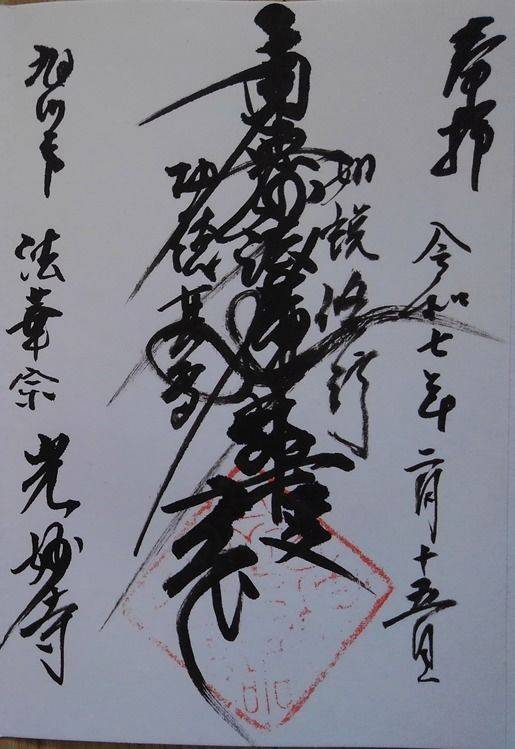 奉拝 令和七年二月十五日
如説修行
南無妙法蓮華経
功徳甚多
旭川市 法華宗 光妙寺